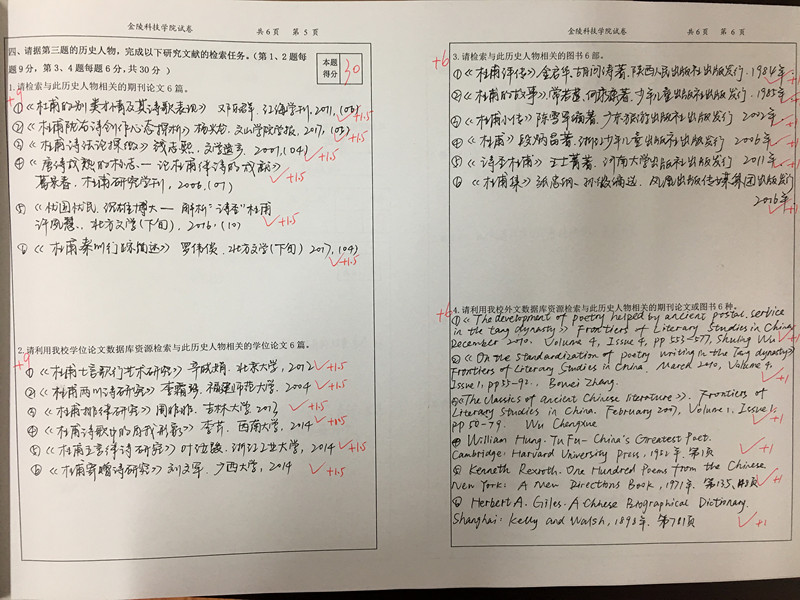 金陵科技学院试卷 共6页 第5页
四、请据第三题的历史人物，完成以下研究文献的检索任务。（第1、2题每
题9分，第3、4题每题6分，共30分）
本题
得分
30
+9
1.请检索与此历史人物相关的期刊论文6篇。
①《杜甫的别类才情及其诗歌表现》 江海学刊, 2011,
+1.5
②《杜甫陇右诗创作心态探析》 2017,
+1.5
③《杜甫诗法论探微》 文学遗产, 2001, (04)
+1.5
④《唐诗成熟的标志—论杜甫律诗的成就》
+1.5
葛景春. 杜甫研究学刊,
⑤《忧国忧民, 深雄博大— 解析"诗圣"杜甫
许凤慧. 北方文学(下旬). 2016, (10)
+1.5
⑥《杜甫秦州行踪概述》 罗伟俊. 北方文学(下旬) 2017, (04)
+1.5
+9
2.请利用我校学位论文数据库资源检索与此历史人物相关的学位论文6篇。
①《杜甫七言歌行艺术研究》 北京大学, 2012
+1.5
②《杜甫两川诗研究》 李霜琴. 福建师范大学, 2004
+1.5
③《杜甫排律研究》 吉林大学 2013
+1.5
④《杜甫诗歌中的自我形象》 李芹. 西南大学, 2014
+1.5
⑤《杜甫五言律诗研究》 浙江工业大学, 2014
+1.5
⑥《杜甫寄赠诗研究》 刘文军. 广西大学, 2014
+1.5
金陵科技学院试卷 共6页 第6页
+6
3.请检索与此历史人物相关的图书6部。
①《杜甫评传》. 金启华, 胡问涛著. 陕西人民出版社出版发行. 1984年
+1
②《杜甫的故事》. 少年儿童出版社出版发行. 1985年
+1
③《杜甫小传》 编著. 出版社出版发行. 2002年
+1
④《杜甫》 段炳昌著. 少年儿童出版社出版发行. 2006年
+1
⑤《诗圣杜甫》 王士菁著. 河南大学出版社出版发行. 2011年
+1
⑥《杜甫集》 张忠纲. 孙微编选. 凤凰出版传媒集团出版发行
2016年
+1
+6
4.请利用我校外文数据库资源检索与此历史人物相关的期刊论文或图书6种。
①《The development of poetry helped by ancient postal service
in the tang dynasty》 Frontiers of Literary Studies in China
December 2010. Volume 4, Issue 4, pp 553-577, Shuling Wu
+1
②《On the standardization of poetry writing in the Tang dynasty》
Frontiers of Literary Studies in China. March 2010, Volume 4.
Issue 1, pp55-92., Bowei Zhang.
+1
③《The classics of ancient Chinese literature》. Frontiers of
Literary Studies in China. February 2007, Volume 1, Issue 1,
pp 50-79. Wu Chengxue
+1
④ William Hung. Tu Fu- China's Greatest Poet.
Cambridge: Harvard University press, 1952年. 第1页
+1
⑤ Kenneth Rexroth. One Hundred Poems from the Chinese
New York: A New Directions Book, 1971年. 第135,
+1
⑥ Herbert A. Giles. A Chinese Biographical Dictionary.
Shanghai: Kelly and Walsh, 1898年. 第781页
+1